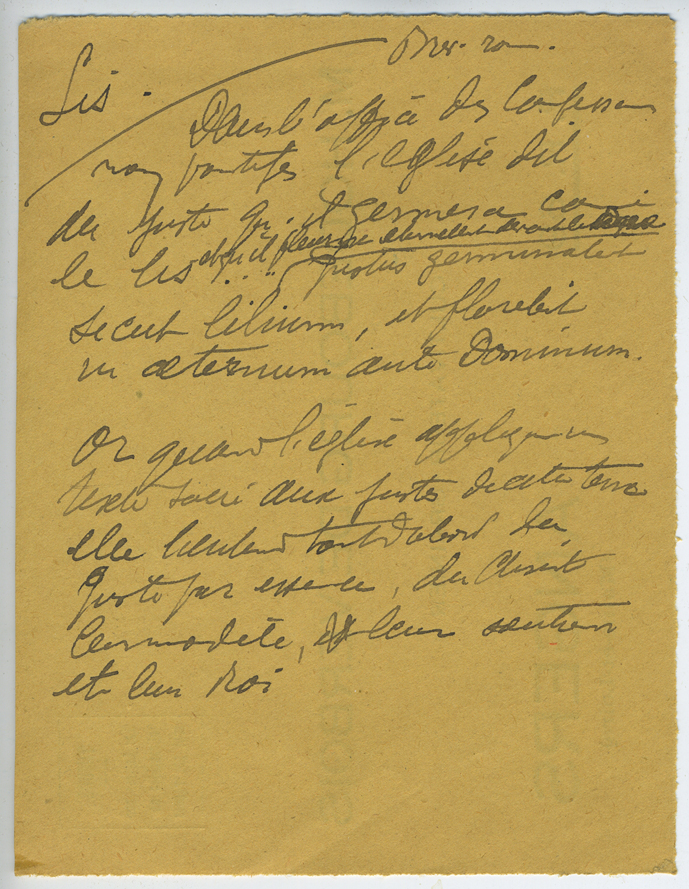 Lis.
Brev. rom.
Dans l'office des Confesseurs
non pontifes l'Eglise dit
du juste qu'il germera comme
le lis et qu'il fleurira éternellement devant le
Justus germinabit
sicut lilium, et florebit
in æternum ante Dominum.
Or quand l'église applique un
texte sacré aux justes de cette terre
elle l'entend tout d'abord du
Juste par essence, du Christ
leur modèle, leur soutien
et leur Roi